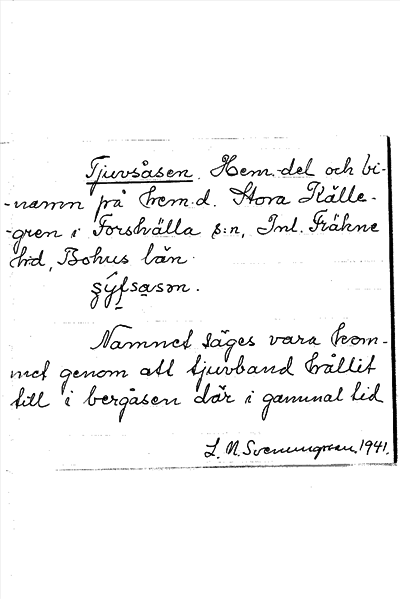 Tjuvsåsen. Hem.del och bi-
-namn på hem.d. Stora Kålle-
-gren i Forshälla s:n, Inl. Fräkne
h:d, Bohus län.
Namnet säges vara kom-
met genom att tjuvband hållit
till i bergåsen där i gammal tid
L. N. Svenungsson, 1941.